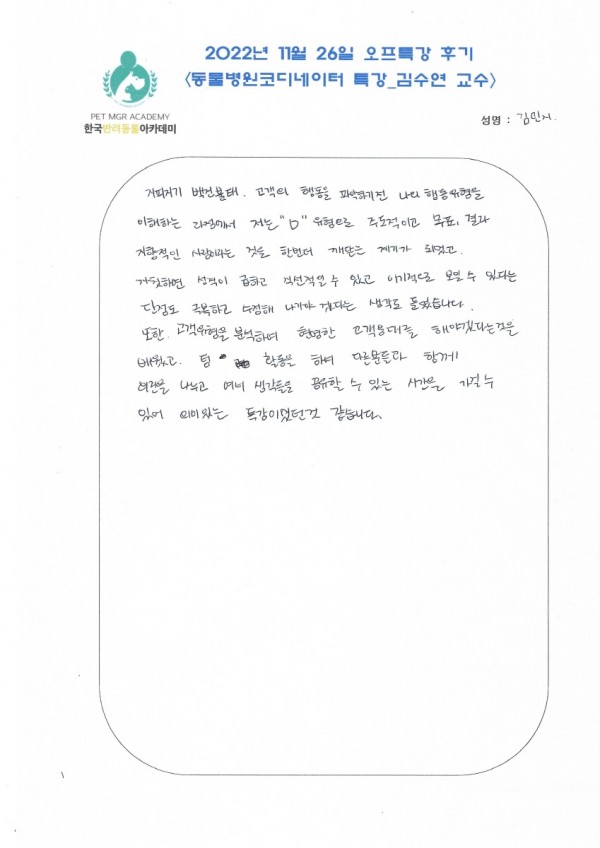 2022년 11월 26일 오프특강 후기
<동물병원코디네이터 특강_김수연 교수>
PET MGR ACADEMY
한국반려동물아카데미
성명 : 김민지.
지피지기 백전불태. 고객의 행동을 파악하기전 나의 행동유형을
이해하는 과정에서 저는 "D" 유형으로 주도적이고 목표, 결과
지향적인 사람이라는 것을 한번더 깨닫는 계기가 되었고.
자칫하면 성격이 급하고 직선적일 수 있고 이기적으로 보일 수 있다는
단점도 극복하고 수정해 나가야 겠다는 생각도 들었습니다.
또한. 고객유형을 분석하며 현명한 고객응대를 해야겠다는것을
배웠고. 팀 활동을 하며 다른분들과 함께
의견을 나누고 여러 생각들을 공유할 수 있는 시간을 가질 수
있어 의미있는 특강이었던것 같습니다.